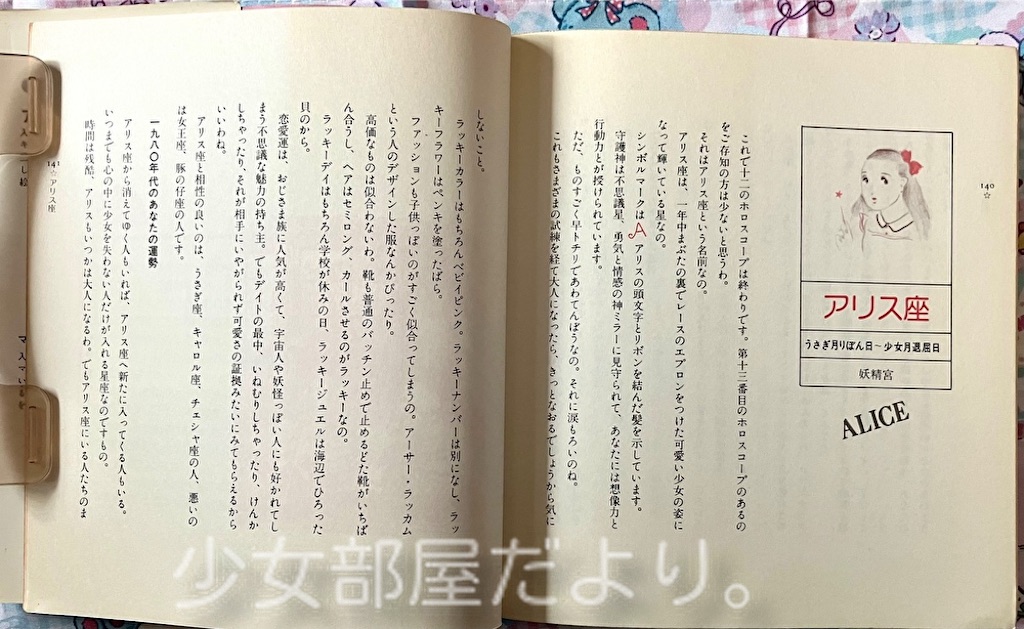 140
☆
アリス座
うさぎ月りぼん日〜少女月退屈日
妖精宮
ALICE
これで十二のホロスコープは終わりです。第十三番目のホロスコープのあるの
をご存知の方は少ないと思うわ。
それはアリス座という名前なの。
アリス座は、一年中まぶたの裏でレースのエプロンをつけた可愛い少女の姿に
なって輝いている星なの。
シンボルマークは A アリスの頭文字とリボンを結んだ髪を示しています。
守護神は不思議星、勇気と情感の神ミラーに見守られて、あなたには想像力と
行動力とが授けられています。
ただ、ものすごく早トチリであわてんぼうなの。それに涙もろいのね。
これもさまざまの試練を経て大人になったら、きっとなおるでしょうから気に
しないこと。
ラッキーカラーはもちろんベビイピンク。ラッキーナンバーは別になし、ラッ
キーフラワーはペンキを塗ったばら。
ファッションも子供っぽいのがすごく似合ってしまうの。アーサー・ラッカム
という人のデザインした服なんかぴったり。
高価なものは似合わないわ。靴も普通のパッチン止めで止めるどた靴がいちば
ん合うし、ヘアはセミロング、カールさせるのがラッキーなの。
ラッキーデイはもちろん学校が休みの日、ラッキージュエルは海辺でひろった
貝のから。
恋愛運は、おじさま族に人気が高くて、宇宙人や妖怪っぽい人にも好かれてし
まう不思議な魅力の持ち主。でもデイトの最中、いねむりしちゃったり、けんか
しちゃったり、それが相手にいやがられず可愛さの証拠みたいにみてもらえるから
いいわね。
アリス座と相性の良いのは、うさぎ座、キャロル座、チェシャ座の人、悪いの
は女王座、豚の仔座の人です。
一九八〇年代のあなたの運勢
アリス座から消えてゆく人もいれば、アリス座へ新たに入ってくる人もいる。
いつまでも心の中に少女を失わない人だけが入れる星座なのですもの。
時間は残酷、アリスもいつかは大人になるわ。でもアリス座にいる人たちのま
141☆アリス座
少女部屋だより。